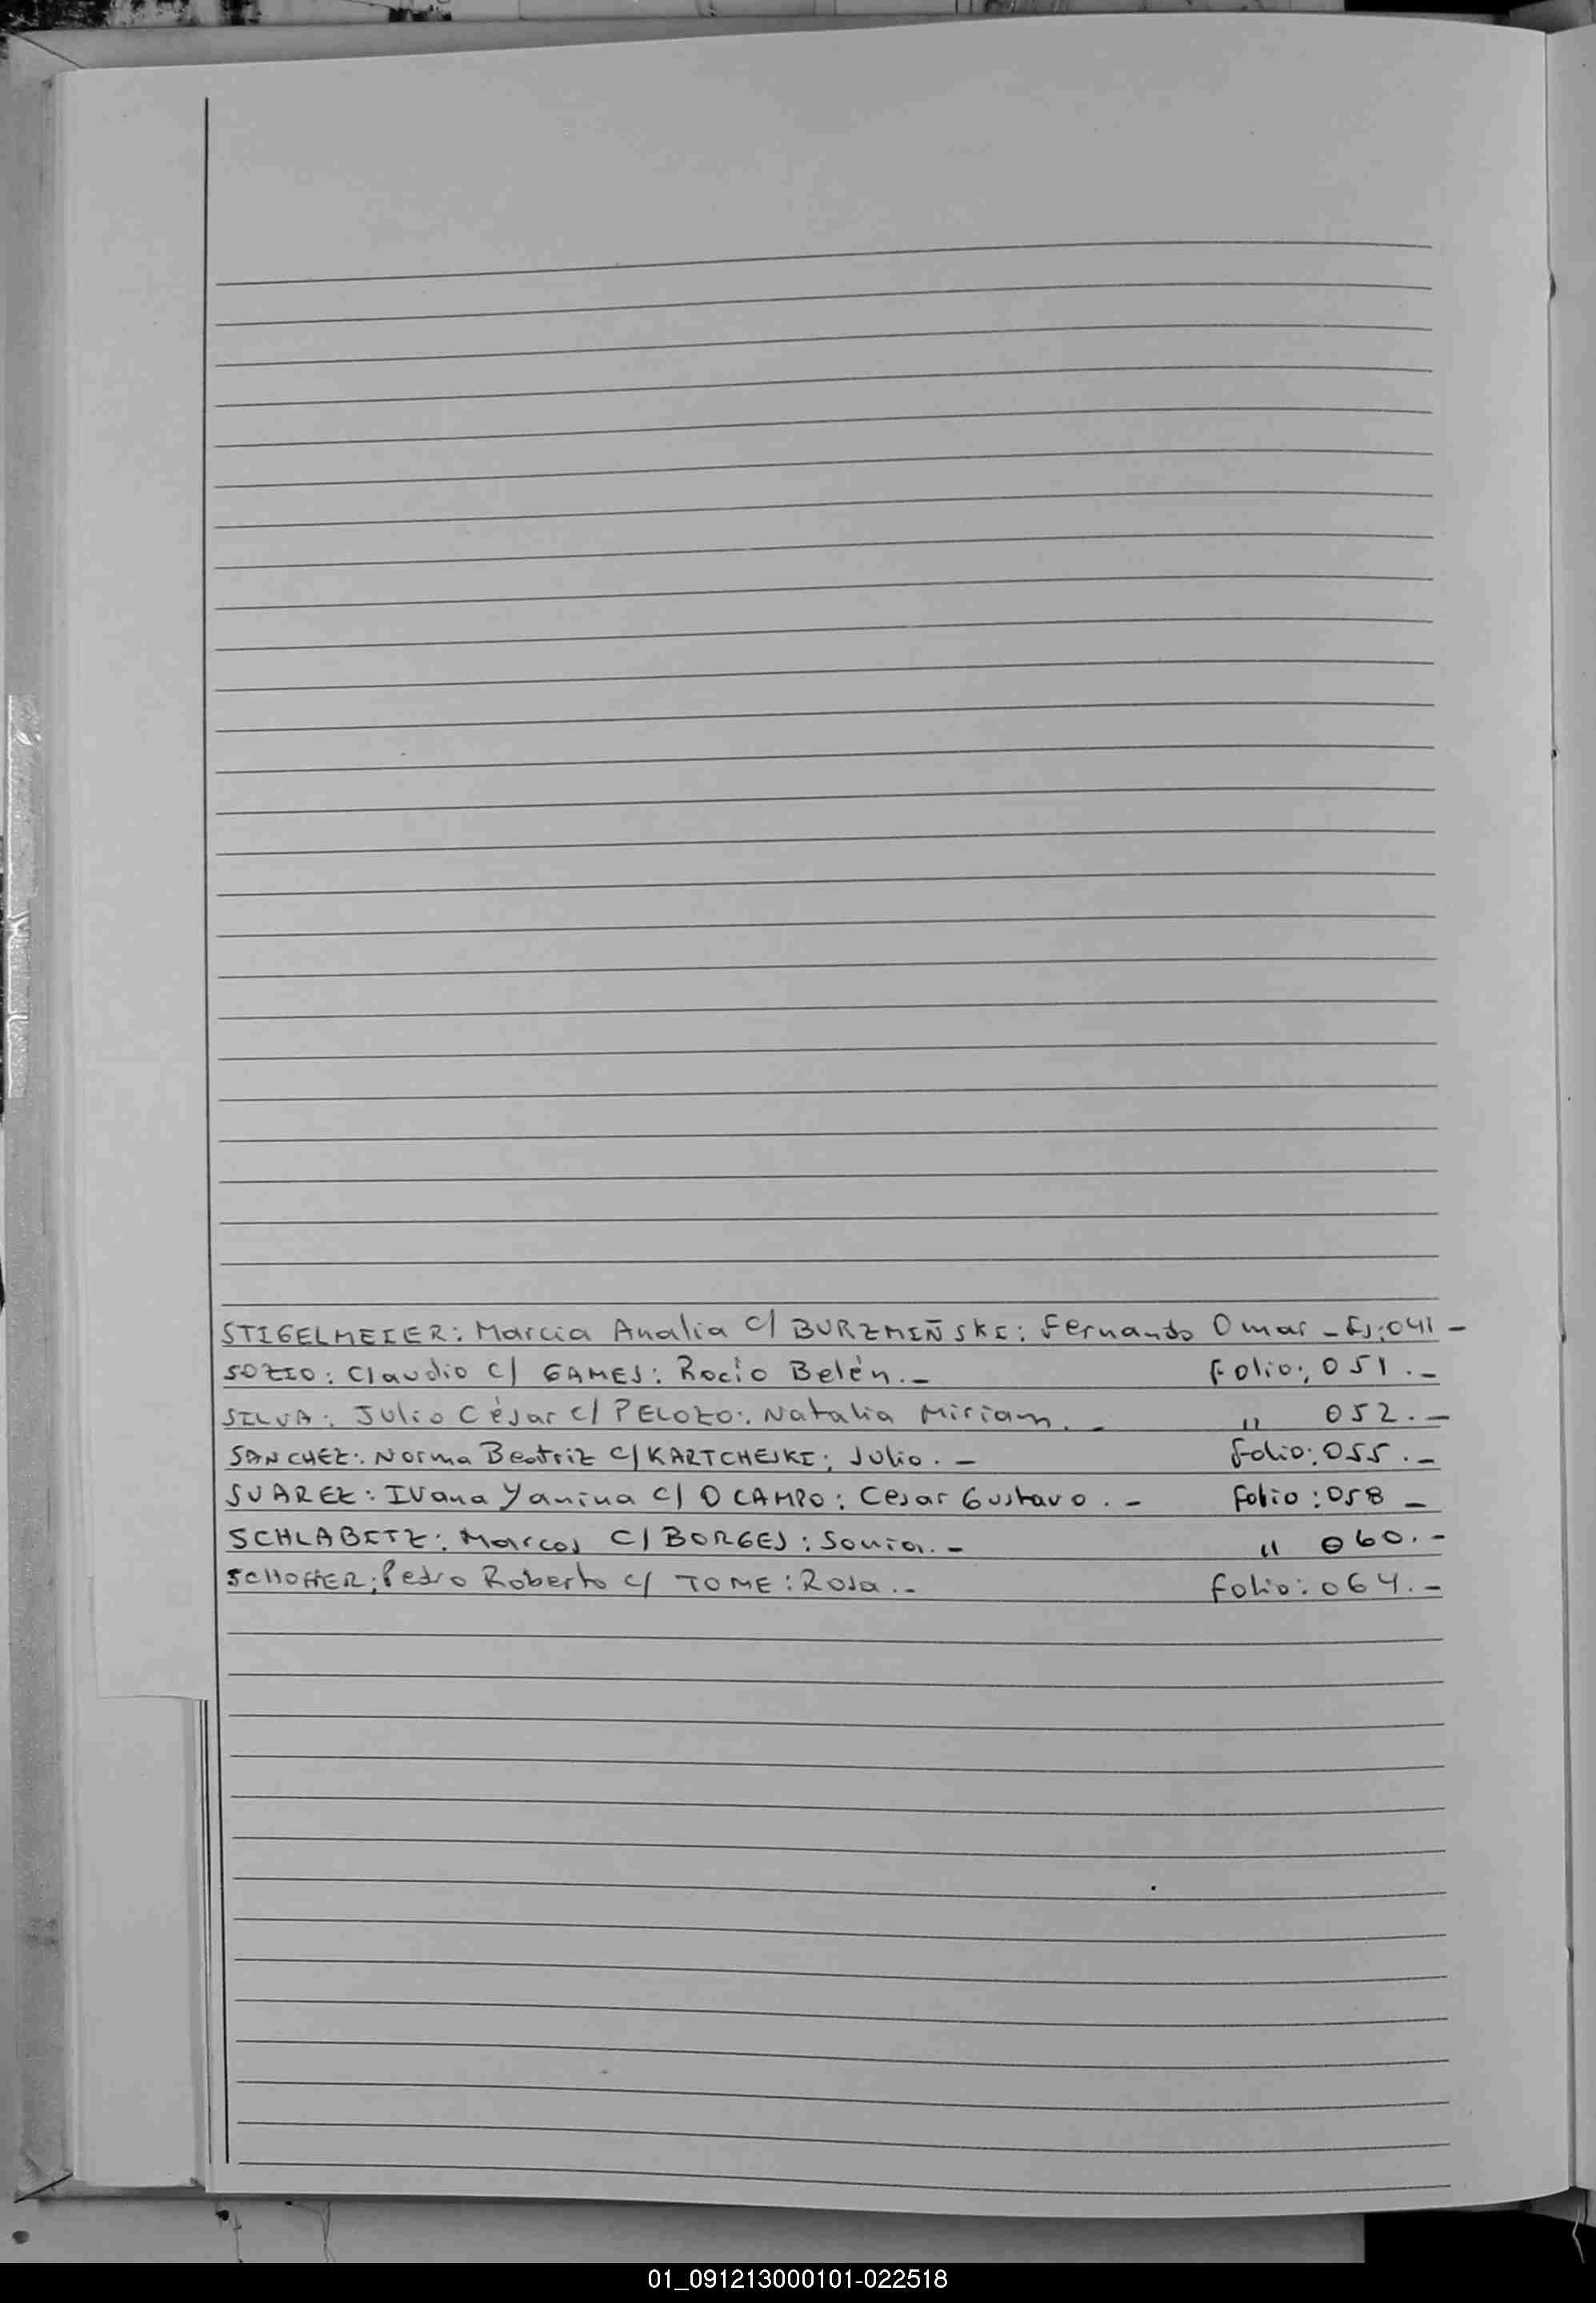 STIGELMEIER: Marcia Analia c/ BURZMIÑSKI: Fernando Omar - Fs:041 -
SOZIO: Claudio c/ GAMES: Rocío Belén.- Folio: 051.-
SILVA: Julio César c/ PELOZO: Natalia Miriam.- " 052.-
SANCHEZ: Norma Beatriz c/ KARTCHESKI: Julio.- Folio: 055.-
SUAREZ: Ivana Yanina c/ OCAMPO: Cesar Gustavo.- Folio: 058 -
SCHLABITZ: Marcos c/ BORGES: Sonia.- " 060.-
SCHOFFER: Pedro Roberto c/ TOME: Rosa.- Folio: 064.-
01_091213000101-022518